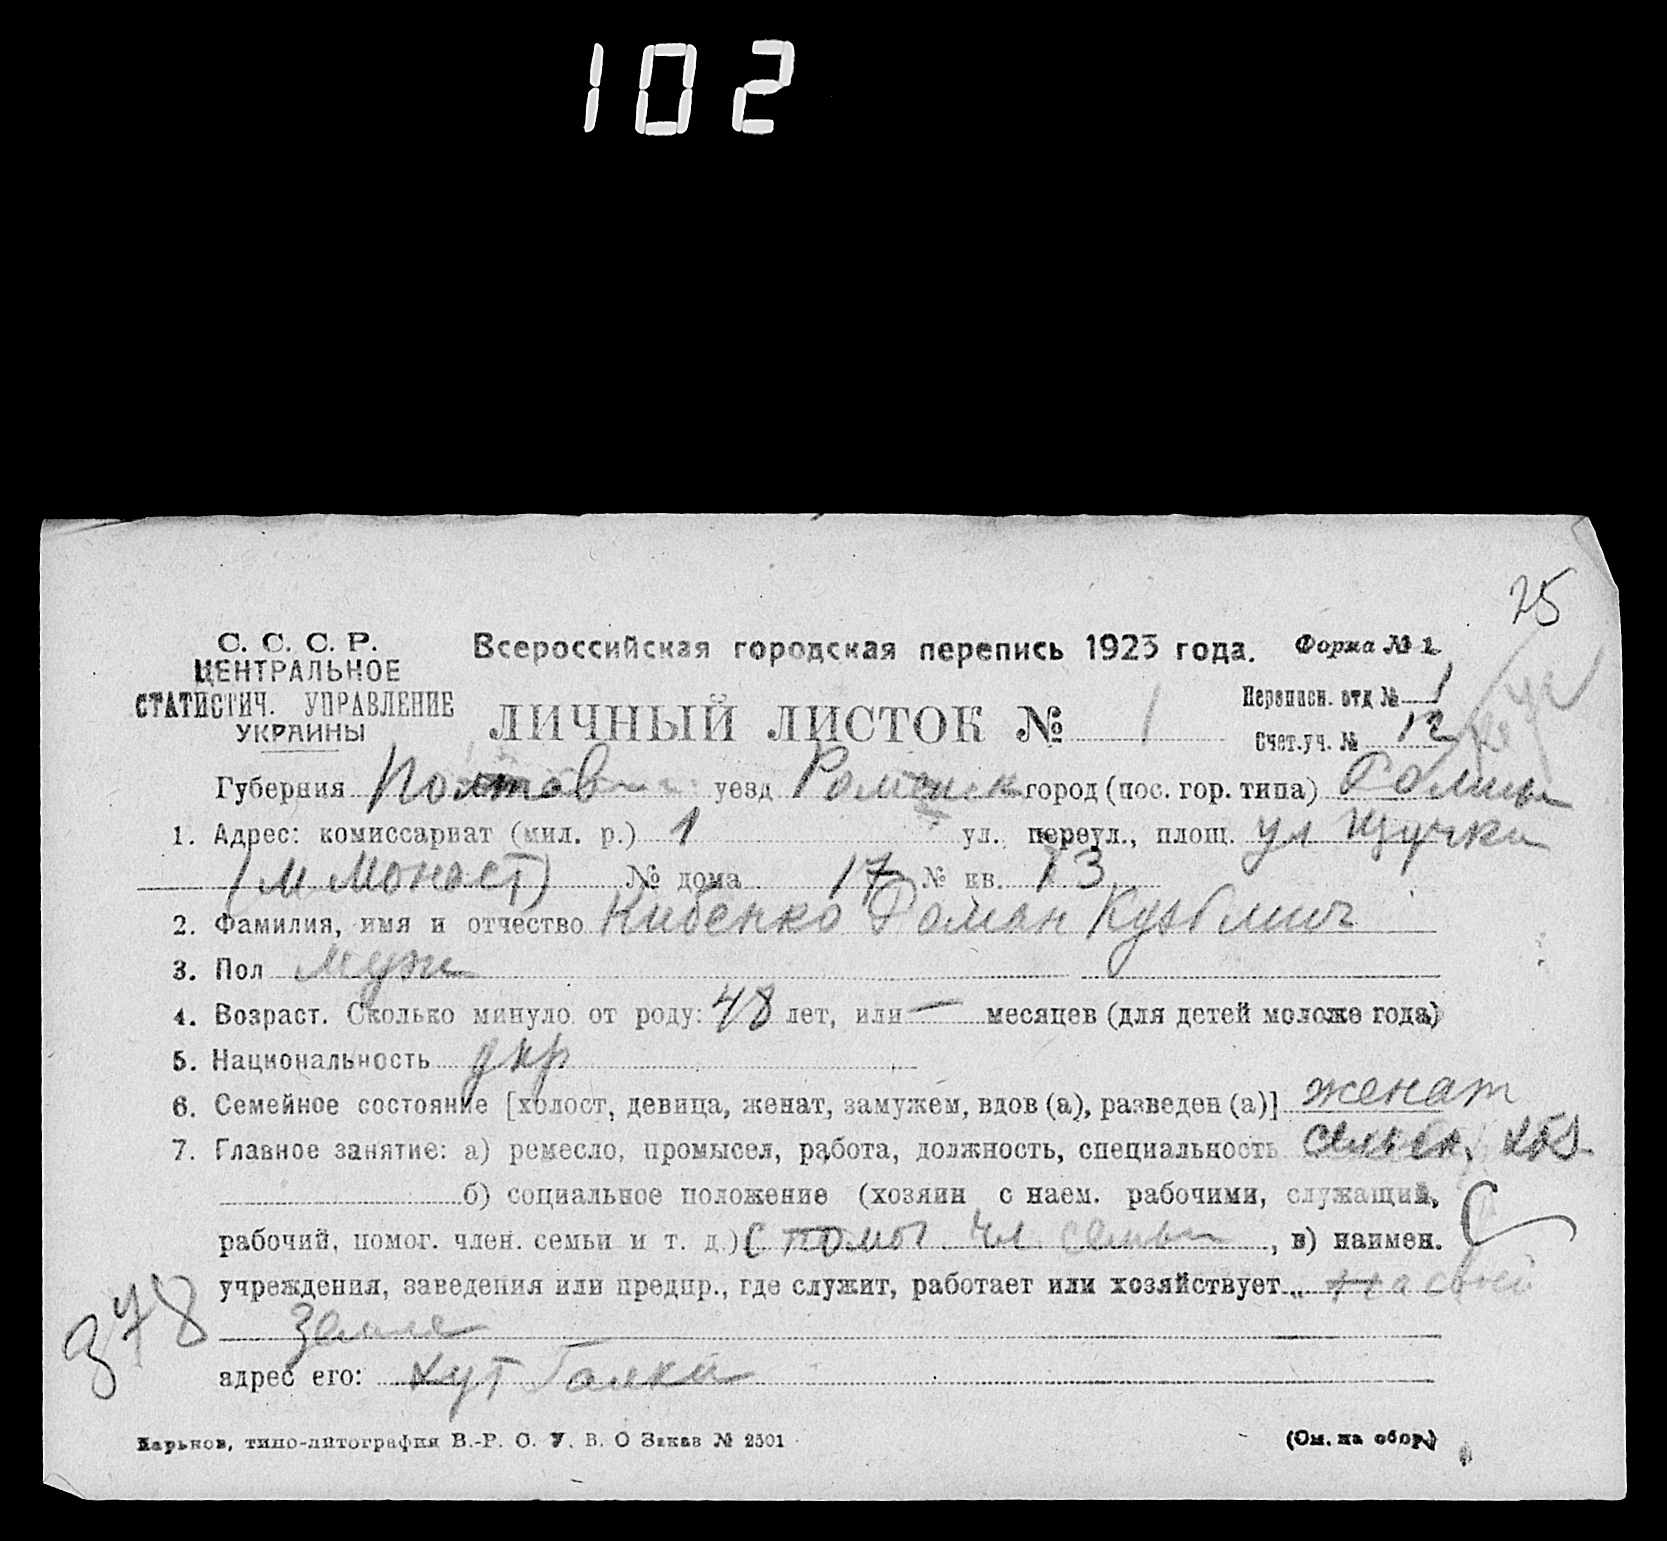 102
25
С. С. С. Р.
ЦЕНТРАЛЬНОЕ
СТАТИСТИЧ. УПРАВЛЕНИЕ
УКРАИНЫ
Всероссийская городская перепись 1923 года. Форма № 1
ЛИЧНЫЙ ЛИСТОК № 1
Переписн. отд № 1
Счет.уч. № 12
Губерния Полтав уезд Роменск город (пос. гор. типа) Ромны
1. Адрес: комиссариат (мил. р.) 1 ул. переул., площ. ул Щучки
(м Монаст) № дома 17 № кв. 3
2. Фамилия, имя и отчество Кибенко Роман Кузьмич
3. Пол муж
4. Возраст. Сколько минуло от роду: 48 лет, или — месяцев (для детей моложе года)
5. Национальность укр
6. Семейное состояние [холост, девица, женат, замужем, вдов (а), разведен (а)] женат
7. Главное занятие: а) ремесло, промысел, работа, должность, специальность сельск. хоз
б) социальное положение (хозяин с наем. рабочими, служащий,
рабочий, помог. член. семьи и т. д.) с помог чл семьи, в) наимен.
учреждения, заведения или предпр., где служит, работает или хозяйствует на своей
земле
адрес его: хут Галки
378
Харьков, типо-литография В.-Р. О. У. В. О Заказ № 2301
(См. на обор.)